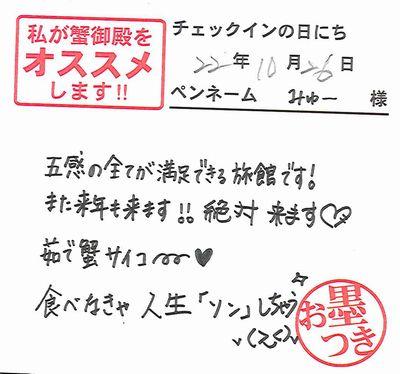 私が蟹御殿を
オススメ
します!!
チェックインの日にち
22年10月26日
ペンネーム みゅー 様
五感の全てが満足できる旅館です!
また来年も来ます!! 絶対 来ます♡
茹で蟹サイコ〜〜♥
食べなきゃ 人生「ソン」しちゃう
お墨つき